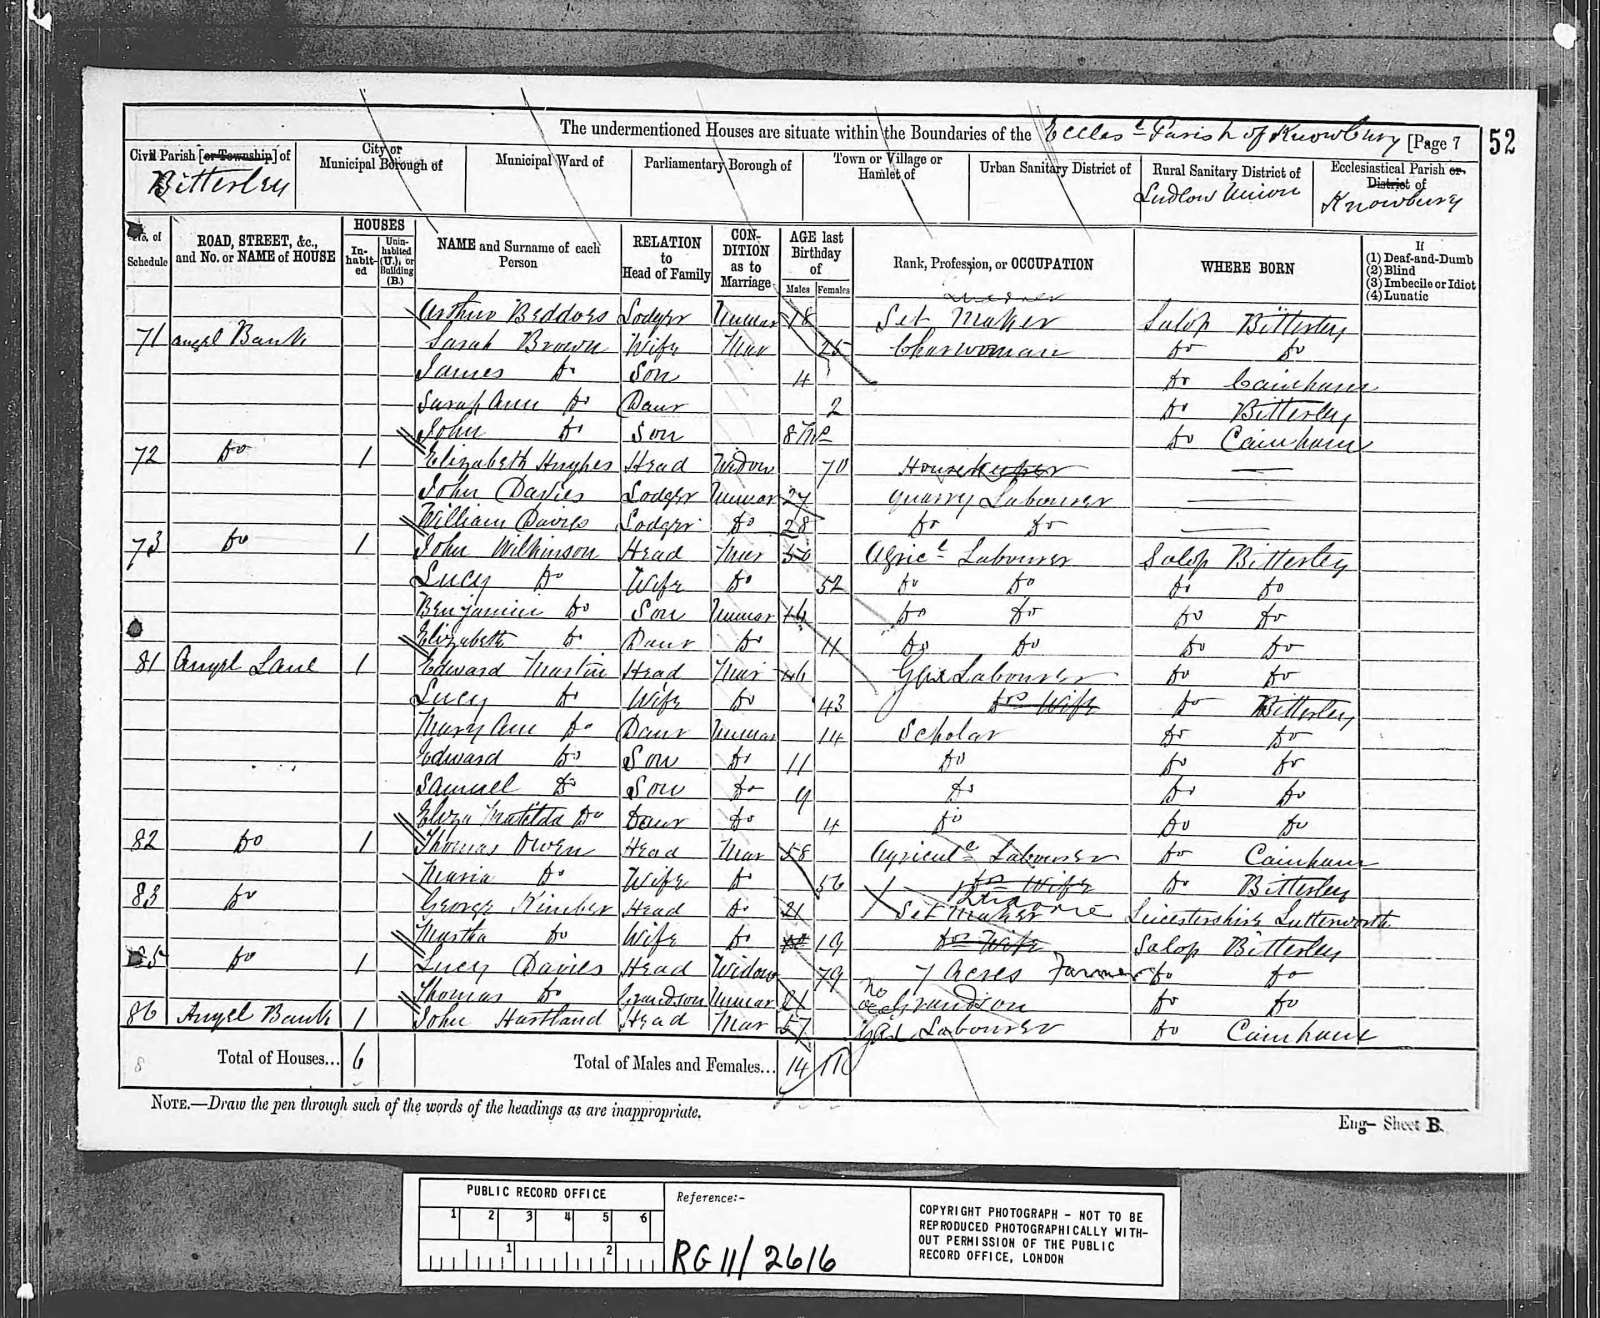 The undermentioned Houses are situate within the Boundaries of the Eccles^l Parish of Knowbury [Page 7
52
Civil Parish [or Township] of
Bitterley
City or Municipal Borough of
Municipal Ward of
Parliamentary Borough of
Town or Village or Hamlet of
Urban Sanitary District of
Rural Sanitary District of
Ludlow Union
Ecclesiastical Parish or District of
Knowbury
No. of Schedule
ROAD, STREET, &c., and No. or NAME of HOUSE
HOUSES
In-habit-ed
Unin-habited (U.), or Building (B.)
NAME and Surname of each Person
RELATION to Head of Family
CON-DITION as to Marriage
AGE last Birthday of
Males
Females
Rank, Profession, or OCCUPATION
WHERE BORN
If
(1) Deaf-and-Dumb
(2) Blind
(3) Imbecile or Idiot
(4) Lunatic
Arthur Beddoes Lodger Unmar 18 Set Maker Salop Bitterley
71 Angel Bank Sarah Brown Wife Mar 25 Charwoman Do Do
James Do Son 4 Do Cainham
Sarah Ann Do Daur 2 Do Bitterley
John Do Son 8 Mo Do Cainham
72 Do 1 Elizabeth Hughes Head Widow 70 Housekeeper
John Davies Lodger Unmar 27 Quarry Labourer
William Davies Lodger Do 28 Do Do
73 Do 1 John Wilkinson Head Mar 50 Agric^l Labourer Salop Bitterley
Lucy Do Wife Do 52 Do Do Do Do
Benjamin Do Son Unmar Do Do Do Do
Elizabeth Do Daur Do 11 Do Do Do Do
81 Angel Lane 1 Edward Martin Head Mar 46 Labourer Do Do
Lucy Do Wife Do 43 Do Wife Do Bitterley
Mary Ann Do Daur Unmar 14 Scholar Do Do
Edward Do Son Do 11 Do Do Do
Samuel Do Son Do 9 Do Do Do
Eliza Matilda Do Daur Do 4 Do Do Do
82 Do 1 Thomas Owen Head Mar 58 Agricul^l Labourer Do Cainham
Maria Do Wife Do 56 Do Wife Do Bitterley
83 Do George Kimber Head Do 21 Set Maker Leicestershire Lutterworth
Martha Do Wife Do 19 Do Wife Salop Bitterley
85 Do 1 Lucy Davies Head Widow 79 7 Acres Farmer Do Do
Thomas Do Grandson Unmar 21 no occ Grandson Do Do
86 Angel Bank 1 John Hartland Head Mar 57 Labourer Do Cainham
8 Total of Houses... 6 Total of Males and Females... 14 11
NOTE.—Draw the pen through such of the words of the headings as are inappropriate.
Eng— Sheet B.
PUBLIC RECORD OFFICE
1 2 3 4 5 6
1 2
Reference:-
RG 11/2616
COPYRIGHT PHOTOGRAPH - NOT TO BE
REPRODUCED PHOTOGRAPHICALLY WITH-
OUT PERMISSION OF THE PUBLIC
RECORD OFFICE, LONDON